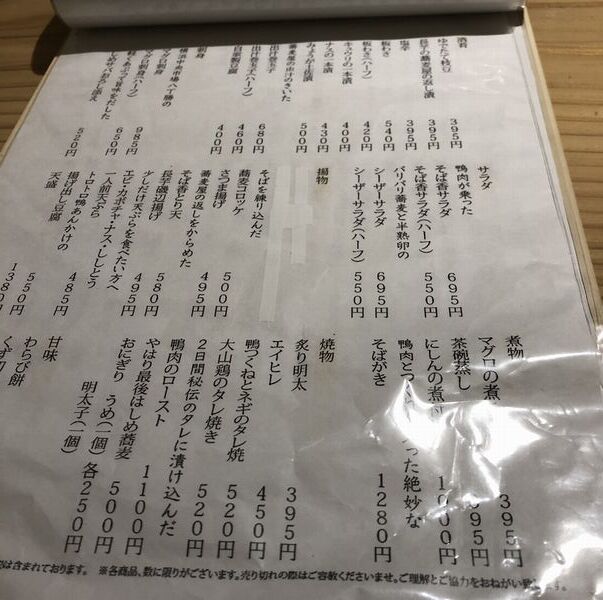 酒肴
ゆでたて枝豆 395円
長芋の蕎麦屋の返し漬 395円
塩辛 395円
板わさ 540円
板わさ(ハーフ) 420円
キュウリの一本漬 400円
ナスの一本漬 430円
みょうが土佐漬 500円
蕎麦屋の出汁のきいた
出汁巻玉子 680円
出汁巻玉子(ハーフ) 460円
自家製豆腐 400円
刺身
横浜中央市場 八丁勝の
マグロ刺身 985円
マグロ刺身(ハーフ) 650円
軽くあぶって旨味をだした
しめサバおろし添え 520円
サラダ
鴨肉が乗った
そば香サラダ 695円
そば香サラダ(ハーフ) 550円
パリパリ蕎麦と半熟卵の
シーザーサラダ 695円
シーザーサラダ(ハーフ) 550円
揚物
そばを練り込んだ
蕎麦コロッケ 500円
さつま揚げ 495円
蕎麦屋の返しをからめた
そば香とり天 580円
長芋磯辺揚げ 495円
少しだけ天ぷらを食べたい方へ
エビ・カボチャ・ナス・ししとう
一人前天ぷら 485円
トロトロ鴨あんかけの
揚げ出し豆腐 550円
天盛 1380円
煮物
マグロの煮 395円
茶碗蒸し 395円
にしんの煮 円
鴨肉とつ った絶妙な
そばがき 1280円
焼物
炙り明太 395円
エイヒレ 450円
鴨つくねとネギのタレ焼 520円
大山鶏のタレ焼き 520円
2日間秘伝のタレに漬け込んだ
鴨肉のロースト 1100円
やはり最後はしめ蕎麦 500円
おにぎり うめ(一個)
明太子(一個) 各250円
甘味
わらび餅
くず切
は含まれております。 ※各商品、数に限りがございます。売り切れの際はご容赦くださいませ。ご理解とご協力をおねがい致します。